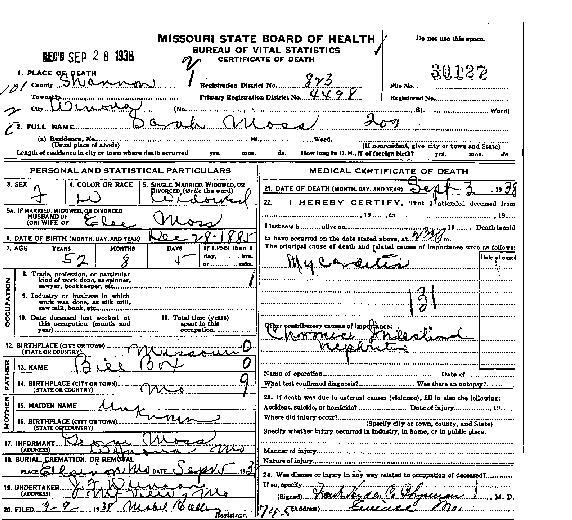 MISSOURI STATE BOARD OF HEALTH
BUREAU OF VITAL STATISTICS
CERTIFICATE OF DEATH
Do not use this space.
REC'D SEP 28 1938
1. PLACE OF DEATH
County Shannon
Registration District No. 823
File No. 30122
Township
Primary Registration District No. 4498
Registered No.
City Winona (No. St. Ward)
2. FULL NAME Sarah Moss 200
(a) Residence, No. St. Ward.
(Usual place of abode) (If nonresident, give city or town and State)
Length of residence in city or town where death occurred yrs. mos. ds. How long in U. S., if of foreign birth? yrs. mos. ds.
PERSONAL AND STATISTICAL PARTICULARS
3. SEX F
4. COLOR OR RACE W
5. SINGLE, MARRIED, WIDOWED, OR DIVORCED (write the word) Widowed
5a. IF MARRIED, WIDOWED, OR DIVORCED
HUSBAND OF
(OR) WIFE OF Moss
6. DATE OF BIRTH (MONTH, DAY, AND YEAR) Dec 28-1885
7. AGE YEARS 52 MONTHS 8 DAYS 5 If LESS than 1 day, hrs. or min.
OCCUPATION
8. Trade, profession, or particular kind of work done, as spinner, sawyer, bookkeeper, etc.
9. Industry or business in which work was done, as silk mill, saw mill, bank, etc.
10. Date deceased last worked at this occupation (month and year)
11. Total time (years) spent in this occupation
12. BIRTHPLACE (CITY OR TOWN) (STATE OR COUNTRY) Missouri 0
FATHER
13. NAME Bill Box 0
14. BIRTHPLACE (CITY OR TOWN) (STATE OR COUNTRY) Mo 9
MOTHER
15. MAIDEN NAME Unknown
16. BIRTHPLACE (CITY OR TOWN) (STATE OR COUNTRY)
17. INFORMANT Moss
(ADDRESS) Winona Mo
18. BURIAL, CREMATION, OR REMOVAL
PLACE Mo DATE Sept 5 1938
19. UNDERTAKER J. F. Duncan
(ADDRESS) Mt View, Mo
20. FILED 9-9 1938 Mabel
Registrar.
MEDICAL CERTIFICATE OF DEATH
21. DATE OF DEATH (MONTH, DAY, AND YEAR) Sept. 3 1938
22. I HEREBY CERTIFY, That I attended deceased from
, 19 , to , 19
I last saw h alive on , 19 Death is said
to have occurred on the date stated above, at m.
The principal cause of death and related causes of importance were as follows:
Date of onset
Myocarditis
131
Other contributory causes of importance:
Chronic Intestinal
Nephritis
Name of operation Date of
What test confirmed diagnosis? Was there an autopsy?
23. If death was due to external causes (violence), fill in also the following:
Accident, suicide, or homicide? Date of injury , 19
Where did injury occur?
(Specify city or town, county, and State)
Specify whether injury occurred in industry, in home, or in public place.
Manner of injury
Nature of injury
24. Was disease or injury in any way related to occupation of deceased?
If so, specify
(Signed) M. D.
745 (Address) Eminence Mo.